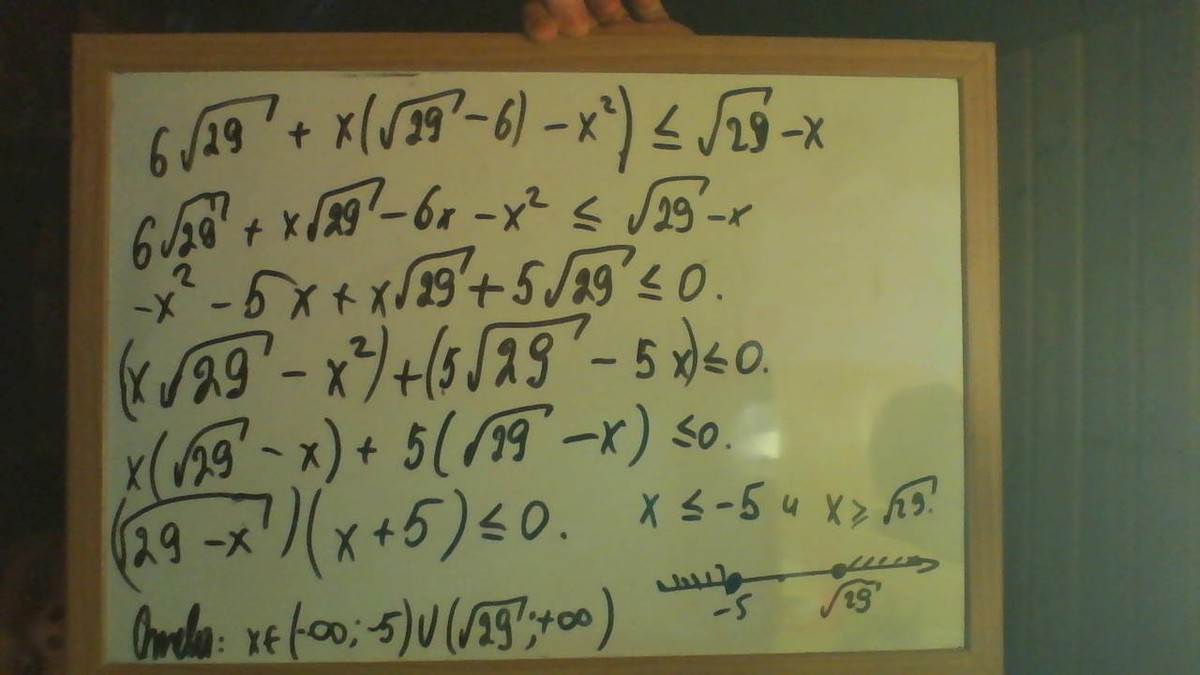 6√29 + x(√29 - 6) - x²) ≤ √29 - x
6√29 + x√29 - 6x - x² ≤ √29 - x
-x² - 5x + x√29 + 5√29 ≤ 0.
(x√29 - x²) + (5√29 - 5x) ≤ 0.
x(√29 - x) + 5(√29 - x) ≤ 0.
(√29 - x)(x + 5) ≤ 0.
x ≤ -5 и x ≥ √29.
-5 √29
Ответ: x ∈ (-∞; -5) U (√29; +∞)